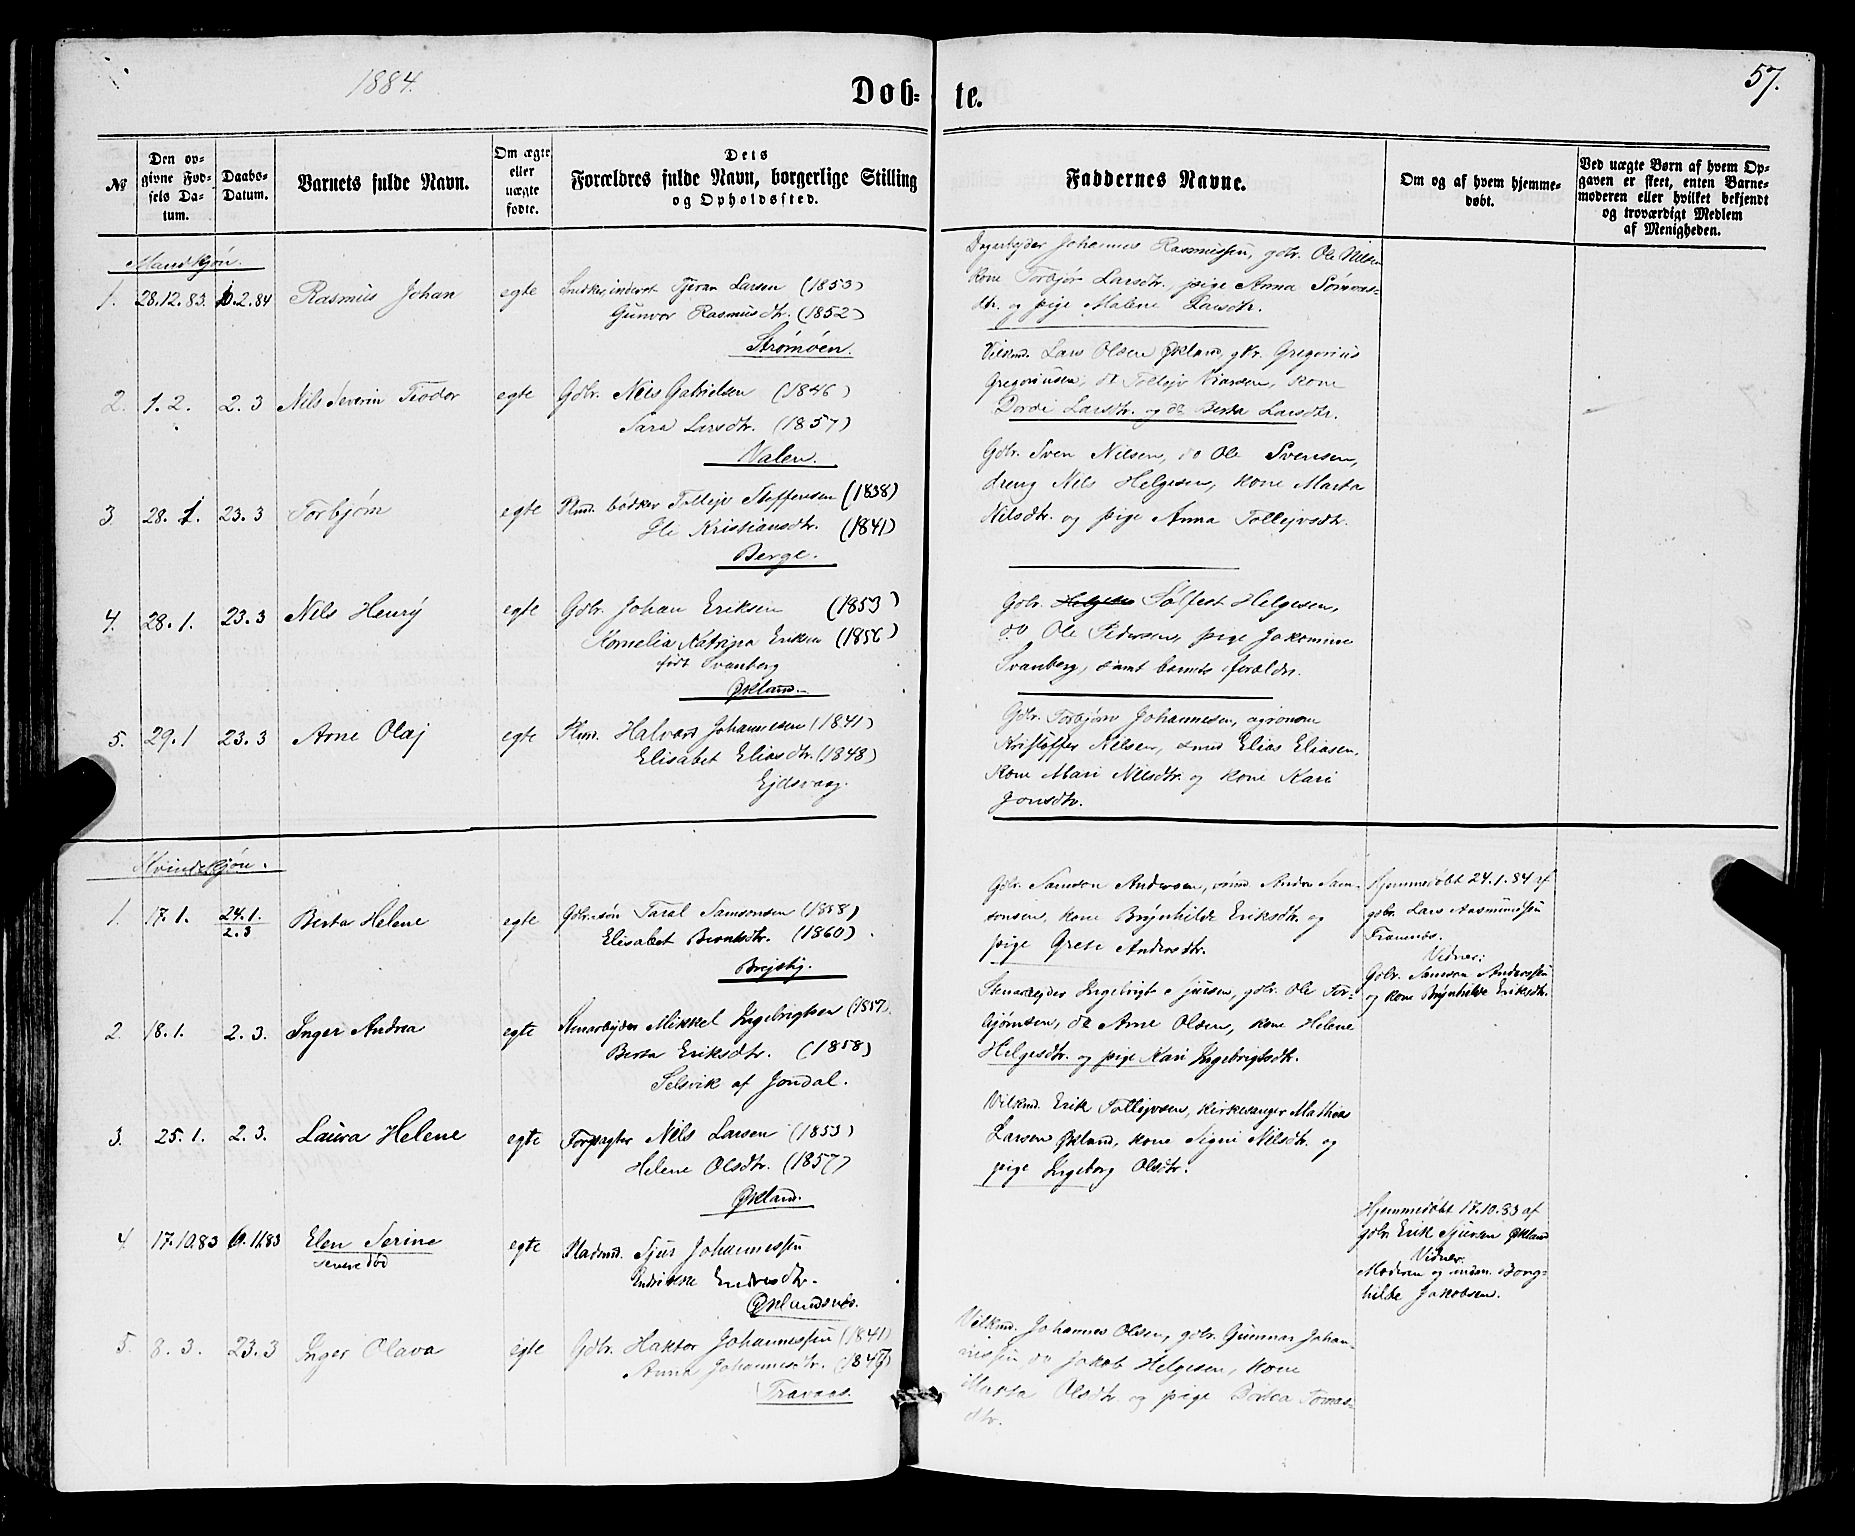 1884.
Døb-
te.
57.
№
Den op-
givne Fød-
sels Da-
tum.
Daabs-
Datum.
Barnets fulde Navn.
Om ægte
eller
uægte
fødte.
Dets
Forældres fulde Navn, borgerlige Stilling
og Opholdssted.
Faddernes Navne.
Om og af hvem hjemme-
døbt.
Ved uægte Børn af hvem Op-
gaven er skeet, enten Barne-
moderen eller hvilket bekjendt
og troværdigt Medlem
af Menigheden.
Mandkjøn.
1. 28.12.83. 10.2.84 Rasmus Johan egte Snedker, inderst Tjeran Larsen (1853)
Gunvor Rasmusdtr. (1852)
Strømøen.
Dagarbejder Johannes Rasmussen, gbr. Ole Nilsen
kone Torbjør Larsdtr. pige Anna
dtr. og pige Malene Larsdtr.
2. 1.2. 2.3 Nils Severin Teodor egte Gdbr. Nils Gabrielsen (1846)
Sara Larsdtr. (1857)
Valen.
Vilkmd. Lars Olsen Økland, gbr. Gregorius
Gregoriusen, do Tollejv Viarsen, kone
Dordi Larsdtr. og do Berta Larsdtr.
3. 28.1. 23.3 Torbjørn egte Plmd. bødker Tollejv Steffensen (1838)
Eli Kristiansdtr. (1841)
Berge.
Gdbr. Sven Nilsen, do Ole Svensen,
dreng Nils Helgesen, kone Marta
Nilsdtr. og pige Anna Tollejvsdtr.
4. 28.1. 23.3 Nils Henrÿ egte Gdbr. Johan Eriksen (1853)
Kornelia Katrina Eriksen (1856)
født Svanberg
Økland.
Gdbr. Sølfest Helgesen,
do Ole Pedersen, pige Jakomine
Svanberg, samt barnets forældre.
5. 29.1 23.3 Arne Olaj egte Plmd. Halvard Johannesen (1841)
Elisabet Eliasdtr. (1848)
Ejdsvaag.
Gdbr. Torbjørn Johannesen, agronom
Kristoffer Nilsen, smed Elias Eliasen,
kone Mari Nilsdtr. og kone Kari
Jonsdtr.
Kvindekjøn.
1. 17.1. 24.1. 2.3 Berta Helene egte Gdbr.søn Taral Samsonsen (1858)
Elisabet Berntsdtr. (1860).
Brejstig.
Gdbr. Samson Andersen, Andre Sam-
sonsen, kone Brynhilde Eriksdtr og
pige Grete Andersdtr.
Hjemmedøbt 24.1.84 af
gdbr. Lars Aasmundsen
Vidner:
Gdbr. Samson Anderssen
og kone Brynhilde Eriksdtr.
2. 18.1. 2.3. Inger Andrea egte Stenarbejder Mikkel Ingebrigtsen (1857)
Berta Eriksdtr. (1858)
Selsvik af Jondal.
Stenarbejder Ingebrigt Sjursen, gdbr. Ole Tor-
bjørnsen, do Arne Olsen, kone Helene
Helgesdtr. og pige Kari Ingebrigtsdtr.
3. 25.1. 2.3. Laura Helene egte Forpagter Nils Larsen (1853)
Helene Olsdtr. (1857)
Økland.
Vilkmd. Erik Tollejvsen, kirkesanger Mathias
Larsen Økland, kone Signi Nilsdtr. og
pige Ingeborg Olsdtr.
4. 17.10.83 6.11.83 Elen Serine egte Pladsmd. Sjur Johannessen
senere død
Endresdtr.
Øklandsnes.
Hjemmedøbt 17.10.83 af
gdbr. Erik Sjursen Økland
Vidner:
Moderen og Borg-
hilde Jakobsen.
5. 8.3. 23.3 Inger Olava egte Gdbr. Haktor Johannessen (1841)
Anna Johannesdtr. (1847)
Travaas.
Vilkmd. Johannes Olsen, gdbr. Gunnar Johan-
nessen do Jakob Helgesen, kone
Marta Olsdtr og pige Tomas-
dtr.